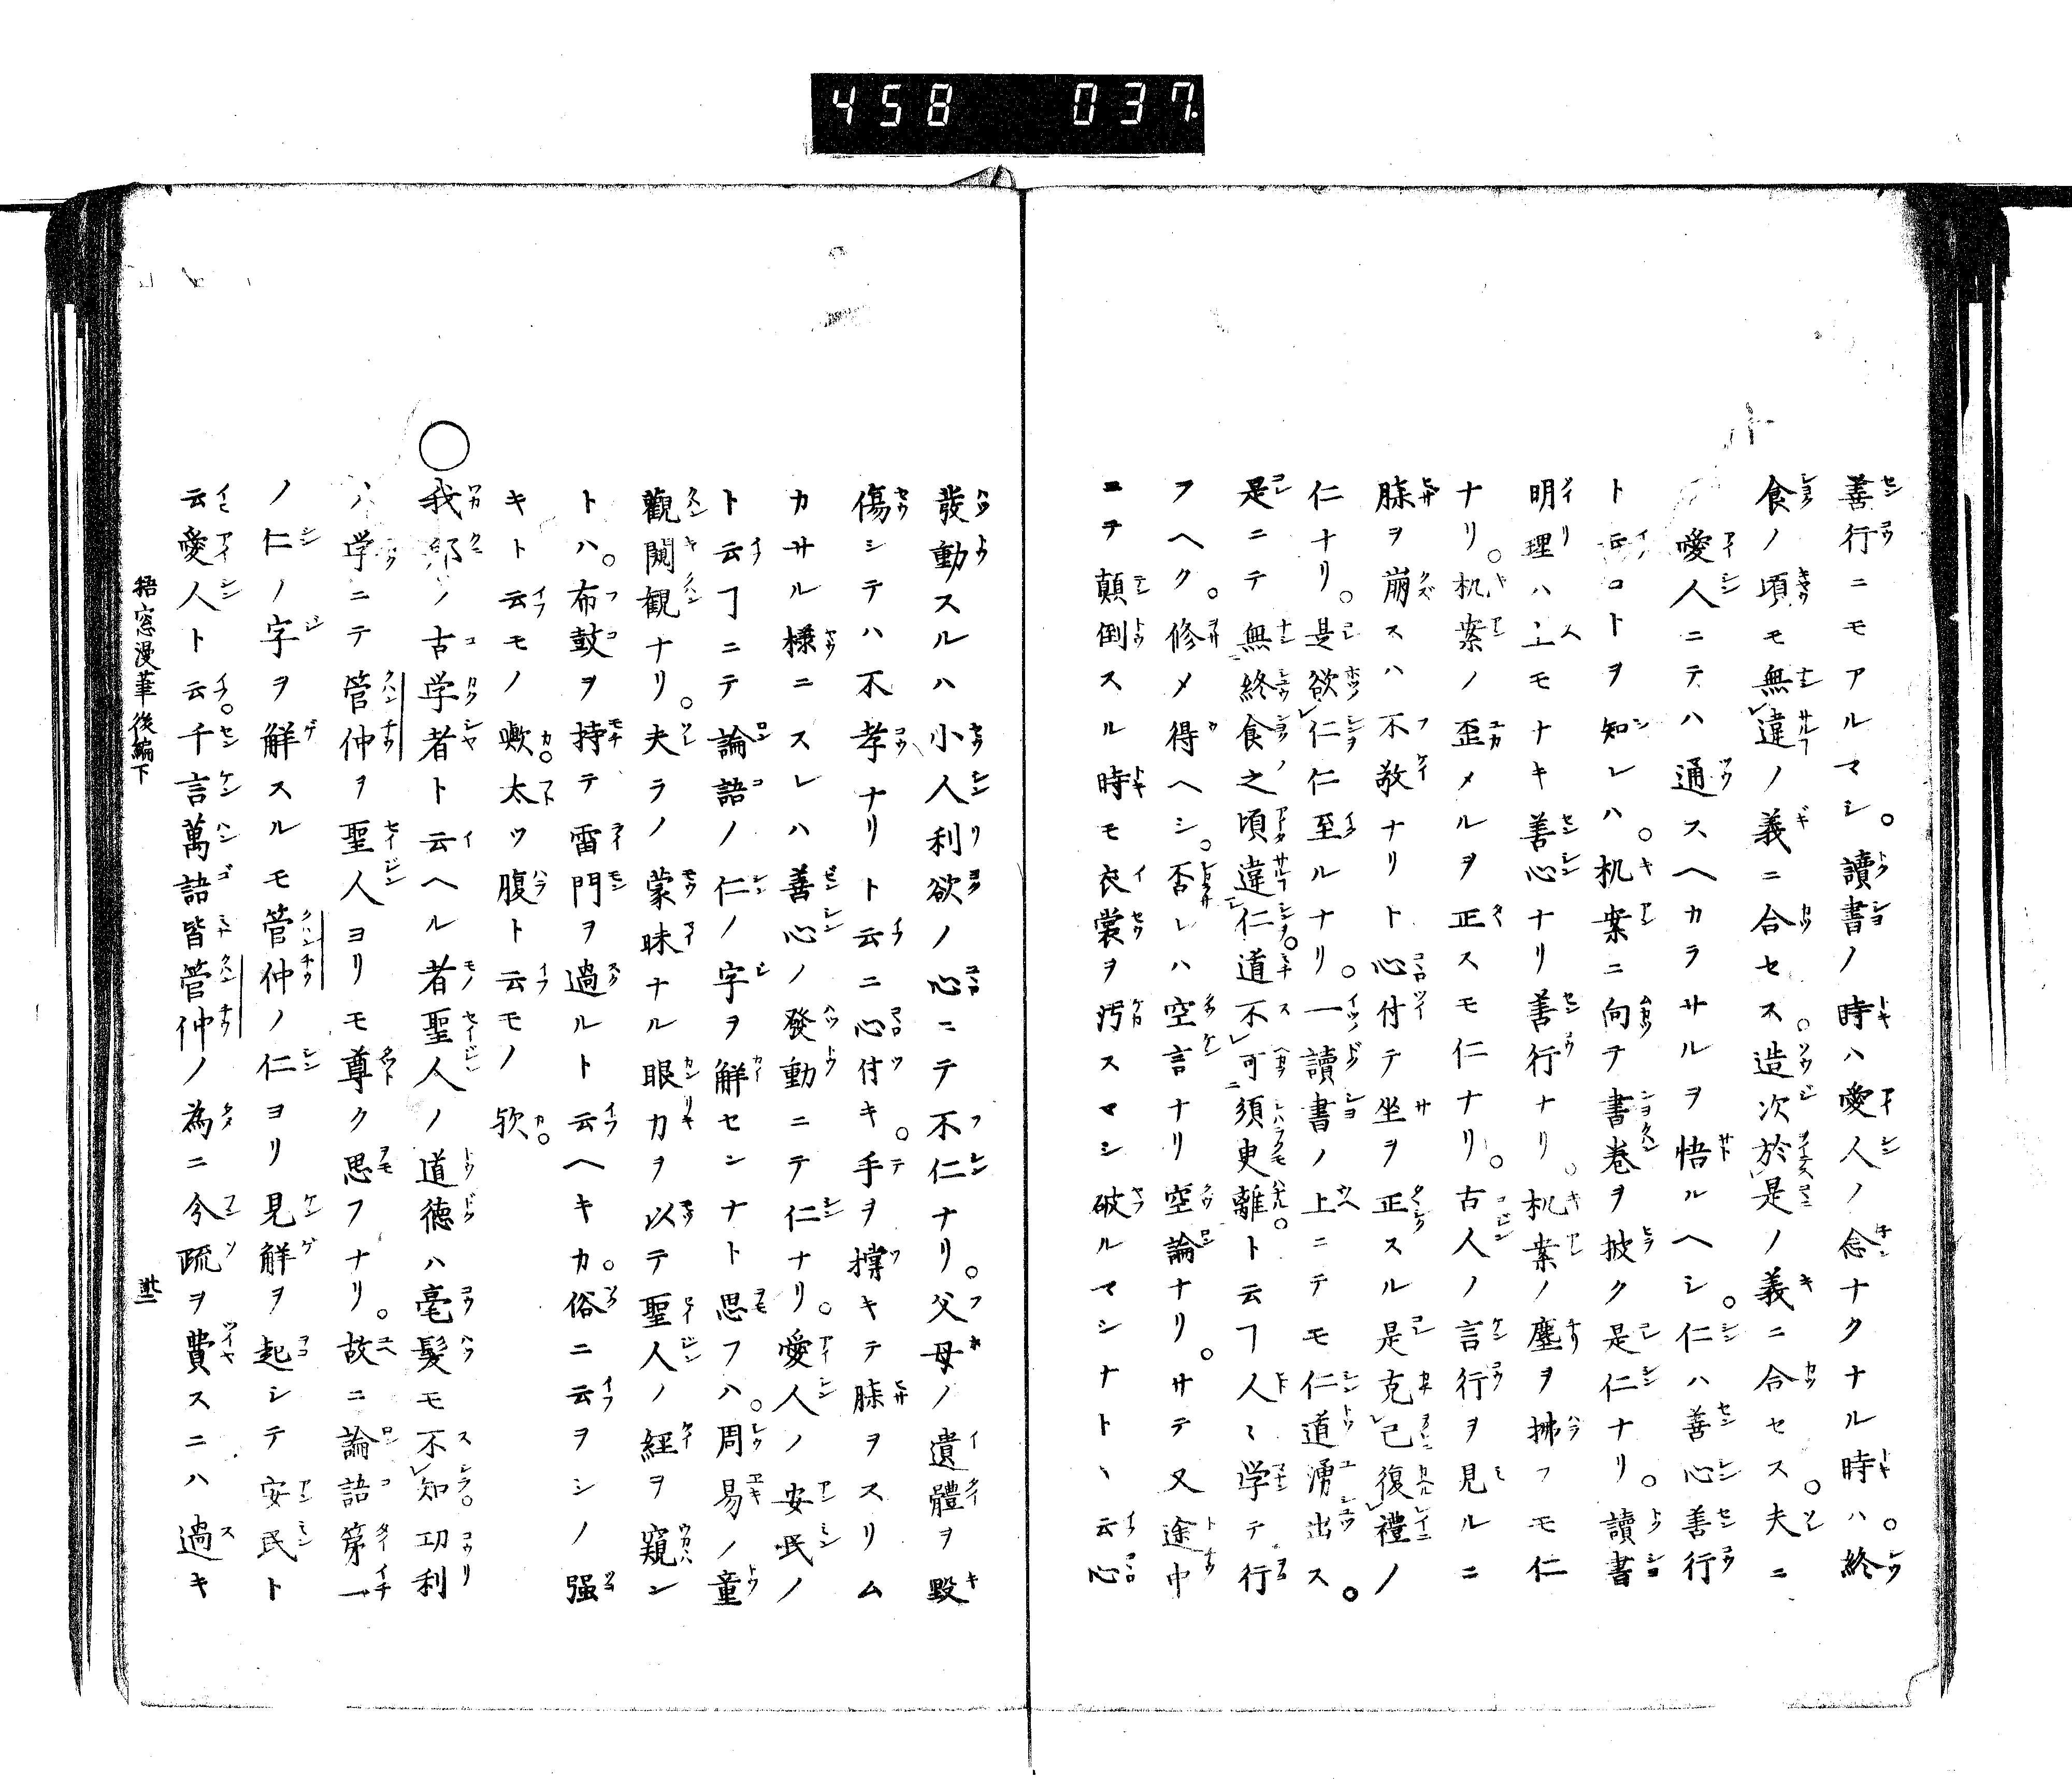 458 037.
善行ニモアルマシ。讀書ノ時ハ愛人ノ念ナクナル時ハ。終
食ノ頃モ無違ノ義ニ合セス。造次於是ノ義ニ合セス。夫ニ
愛人ニテハ通スヘカラサルヲ悟ルヘシ。仁ハ善心善行
ト云コトヲ知レハ。机案ニ向テ書巻ヲ披ク是仁ナリ。讀書
明理ハ上モナキ善心ナリ善行ナリ。机案ノ塵ヲ拂フモ仁
ナリ。机案ノ歪メルヲ正スモ仁ナリ。古人ノ言行ヲ見ルニ
膝ヲ崩スハ不敬ナリト心付テ坐ヲ正スル是克己復禮ノ
仁ナリ。是欲仁仁至ルナリ。一讀書ノ上ニテモ仁道湧出ス。
是ニテ無終食之頃違仁。道不可須臾離。ト云フ人〻学テ行
フヘク。修メ得ヘシ。否レハ空言ナリ空論ナリ。サテ又途中
ニテ顛倒スル時モ衣裳ヲ汚スマシ破ルマシナト丶云心
發動スルハ小人利欲ノ心ニテ不仁ナリ。父母ノ遺體ヲ毀
傷シテハ不孝ナリト云ニ心付キ。手ヲ撐キテ膝ヲスリム
カサル様ニスレハ善心ノ發動ニテ仁ナリ。愛人ノ安民ノ
ト云ヿニテ論語ノ仁ノ字ヲ解センナト思フハ。周易ノ童
觀闚観ナリ。夫ラノ蒙昧ナル眼力ヲ以テ聖人ノ經ヲ窺ン
トハ。布鼓ヲ持テ雷門ヲ過ルト云ヘキカ。俗ニ云ヲシノ强
キト云モノ歟。太ッ腹ト云モノ欤。
○我邦ノ古学者ト云ヘル者聖人ノ道德ハ毫髮モ不知。功利
ハ学ニテ管仲ヲ聖人ヨリモ尊ク思フナリ。故ニ論語第一
ノ仁ノ字ヲ解スルモ管仲ノ仁ヨリ見解ヲ起シテ安民ト
云愛人ト云。千言萬語皆管仲ノ為ニ分疏ヲ費スニハ過キ
梧窓漫筆後編下